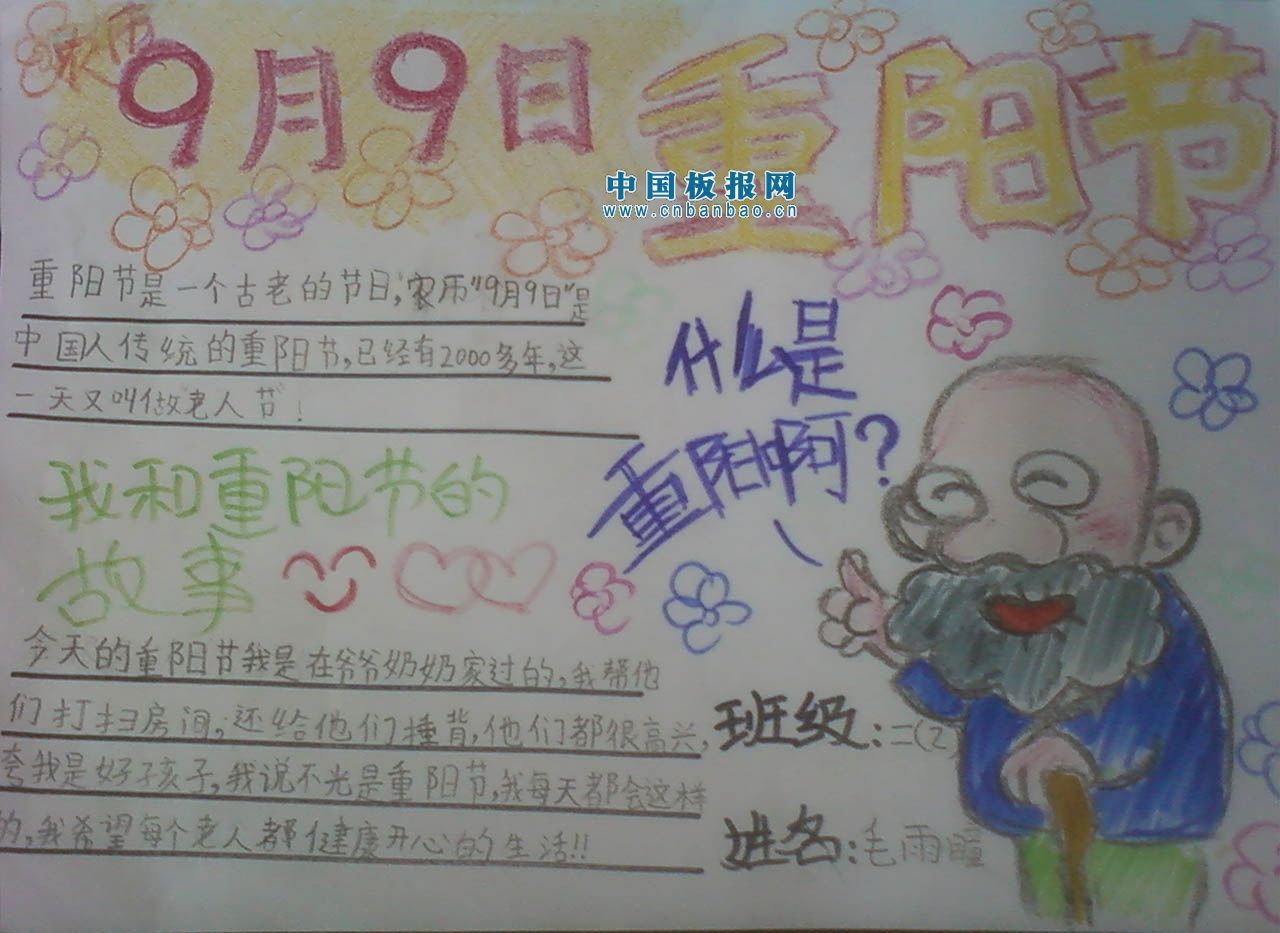 农币
9月9日 重阳节
中国板报网
www.cnbanbao.cn
重阳节是一个古老的节日,农币"9月9日"是
中国人传统的重阳节,已经有2000多年,这
一天又叫做"老人节"!
什么是
重阳啊?
我和重阳节的
故事
今天的重阳节我是在爷爷奶奶家过的,我帮他
们打扫房间,还给他们捶背,他们都很高兴,
夸我是好孩子,我说不光是重阳节,我每天都会这样
的,我希望每个老人都健康开心的生活!!
班级:二(2)
姓名:毛雨瞳